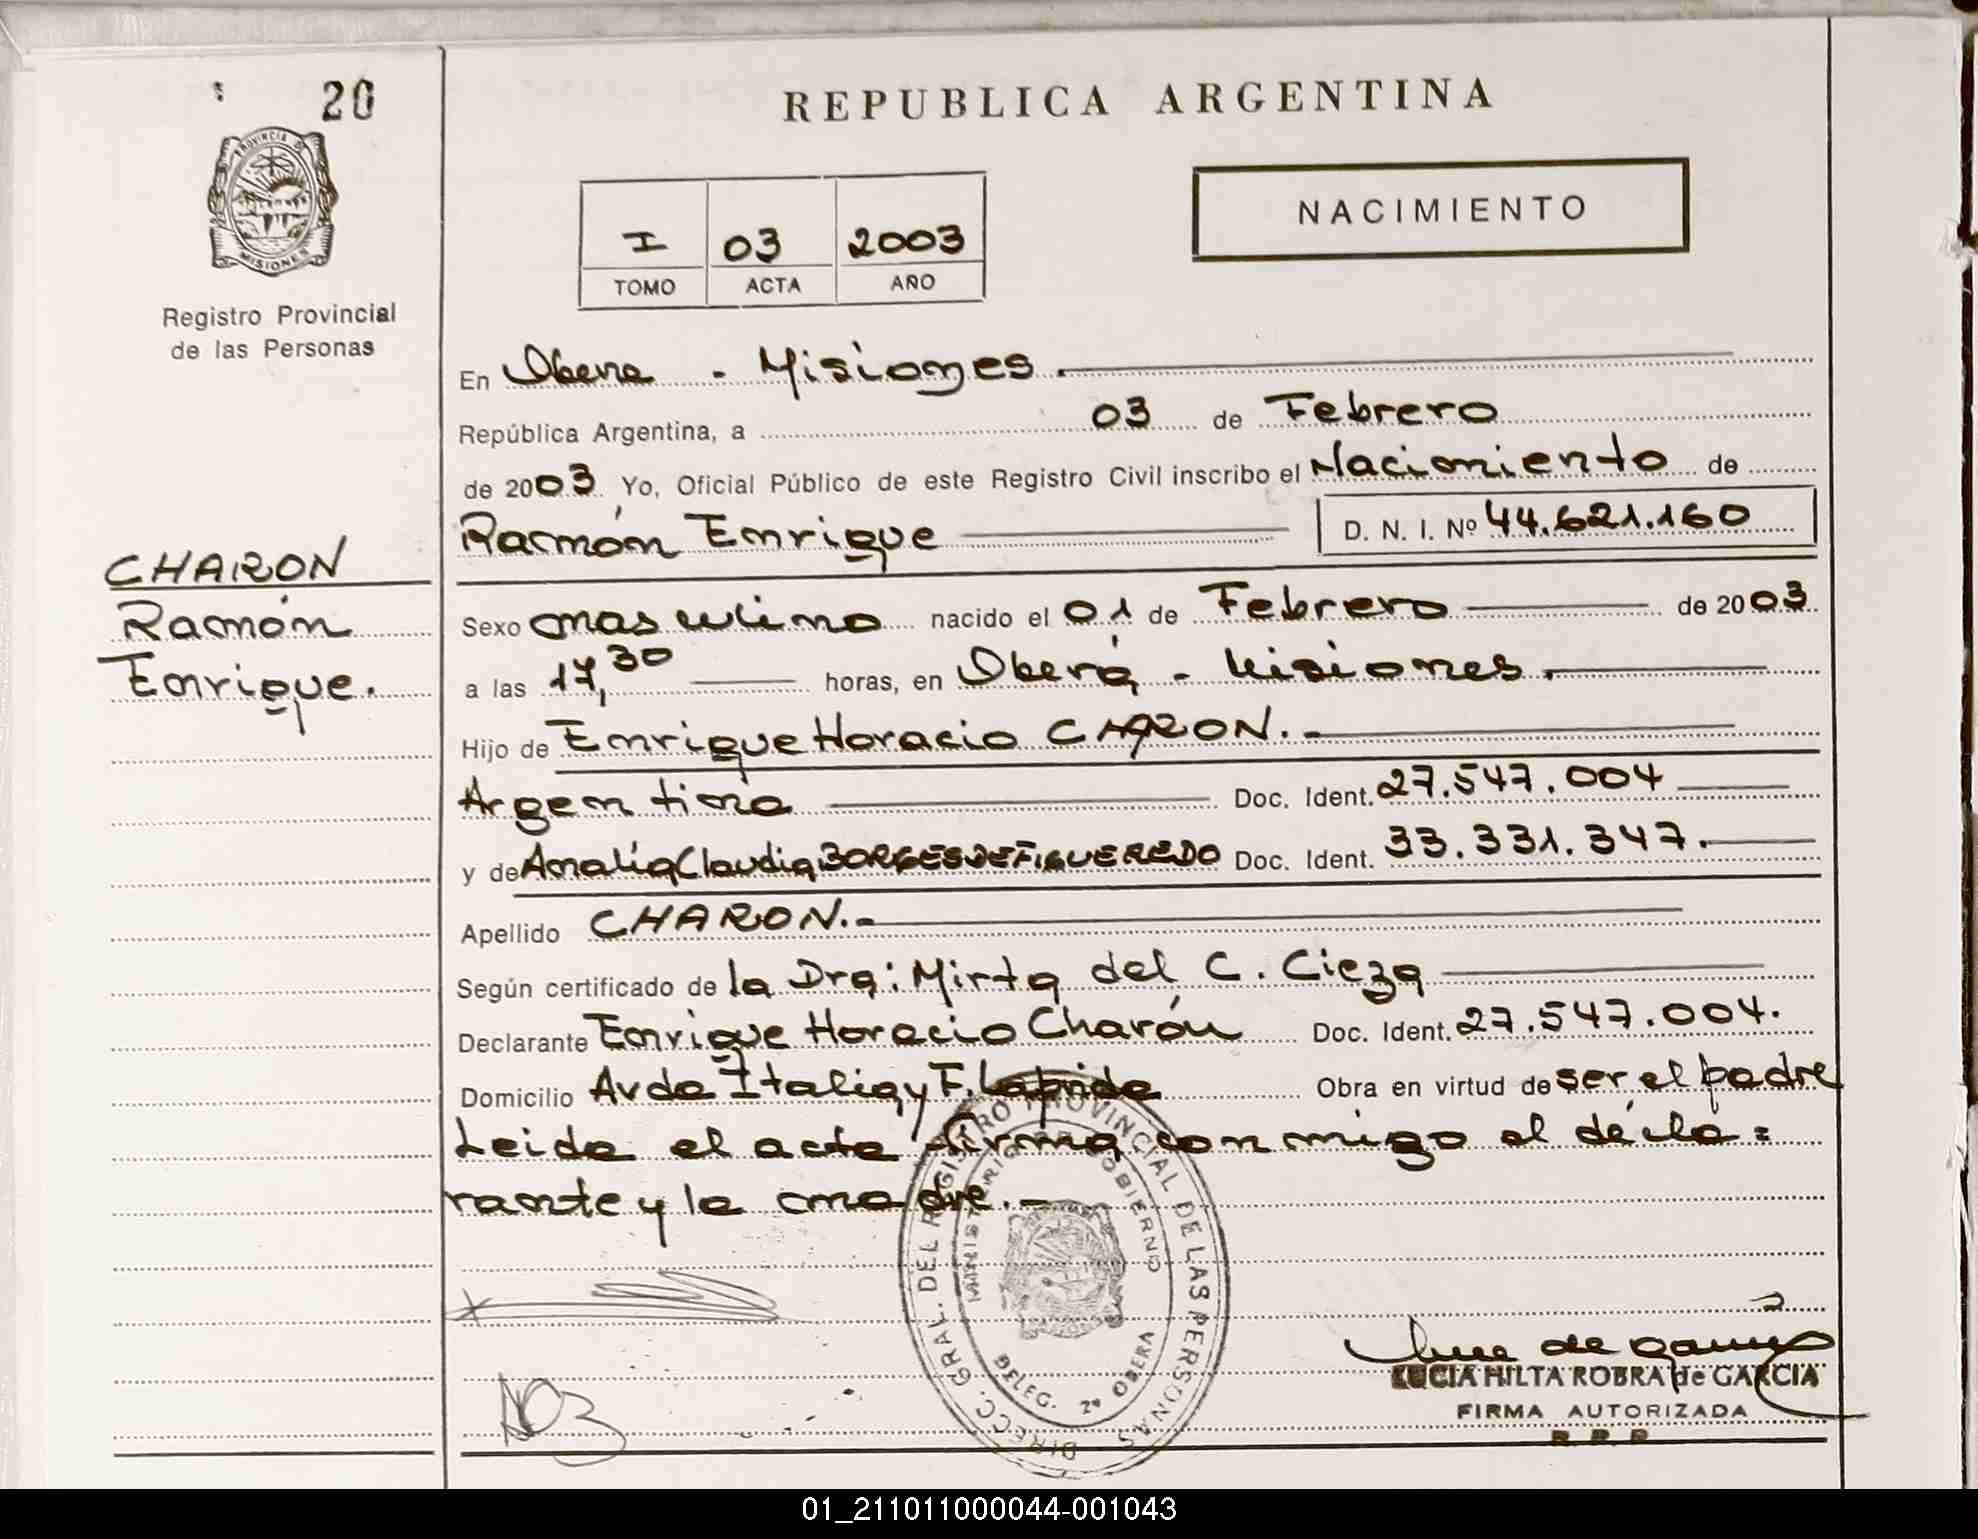 20
PROVINCIA DE
MISIONES
Registro Provincial
de las Personas
CHARON
Ramón
Enrique.
REPUBLICA ARGENTINA
I 03 2003
TOMO ACTA AÑO
NACIMIENTO
En Obera - Misiones.
República Argentina, a 03 de Febrero
de 2003. Yo, Oficial Público de este Registro Civil inscribo el Nacimiento de
Ramón Enrique D. N. I. Nº 44.621.160
Sexo masculino nacido el 01 de Febrero de 2003
a las 17,30 horas, en Oberá - Misiones.
Hijo de Enrique Horacio CHARON.-
Argentina Doc. Ident. 27.547.004
y de Amalia Claudia BORGES DE FIGUEREDO Doc. Ident. 33.331.347.
Apellido CHARON.-
Según certificado de la Dra: Mirta del C. Cieza
Declarante Enrique Horacio Charón Doc. Ident. 27.547.004.
Domicilio Avda Italia y F. Laprida Obra en virtud de ser el padre
Leida el acta firma conmigo el decla=
rante y la madre.-
DIRECC. GRAL. DEL REGISTRO PROVINCIAL DE LAS PERSONAS
MINISTERIO GOBIERNO
DELEG. 2º OBERA
LUCIA HILTA ROBRA de GARCIA
FIRMA AUTORIZADA
R. P. P.
01_211011000044-001043